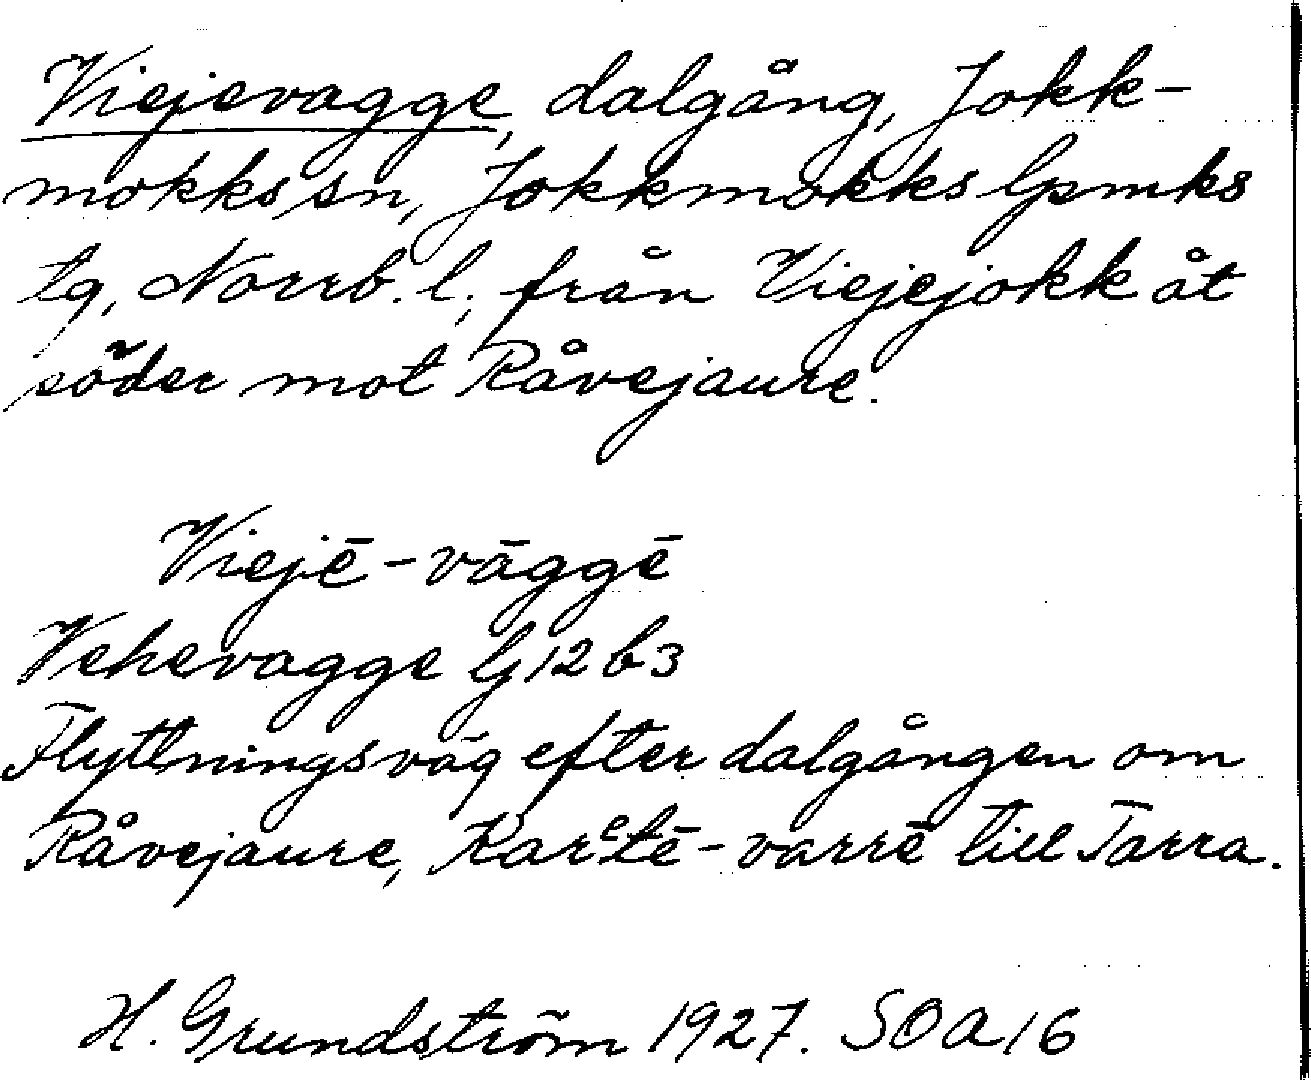 Viejevagge, dalgång, Jokk-
mokks sn, Jokkmokks lpmks
tg, Norrb. l; från Viejejokk åt
söder mot Råvejaure.
Viejē-vāggē
Vehevagge G 12 b 3
Flyttningsväg efter dalgången om
Råvejaure, Karᵉtē-varrē till Tarra.
H. Grundström 1927. SOA 16